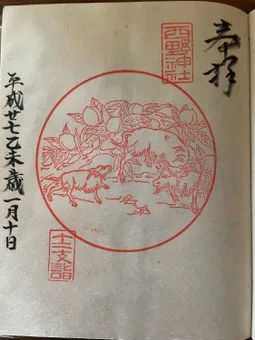 奉拝
西野神社
十二支詣
平成廿七乙未歳一月十日